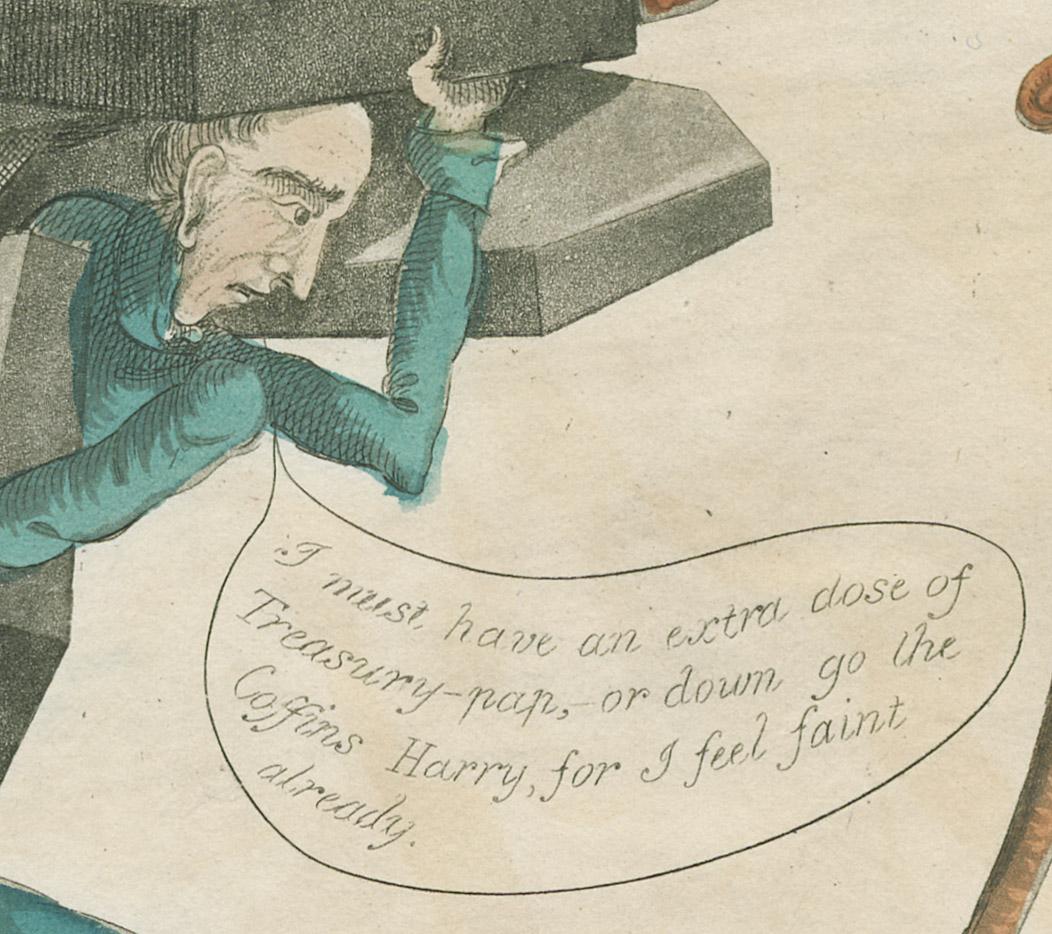 I must have an extra dose of
Treasury-pap,-or down go the
Coffins Harry, for I feel faint
already.